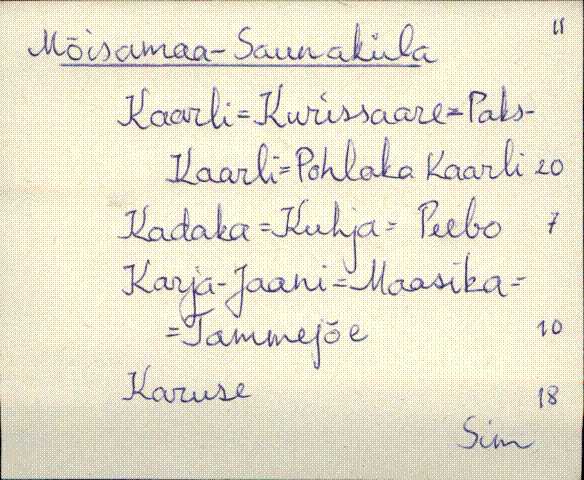 11
Mõisamaa-Saunaküla
Kaarli=Kurissaare=Paks-
Kaarli=Pohlaka Kaarli 20
Kadaka=Kuhja= Peebo 7
Karja-Jaani=Maasika=
=Tammejõe 10
Karuse 18
Sim